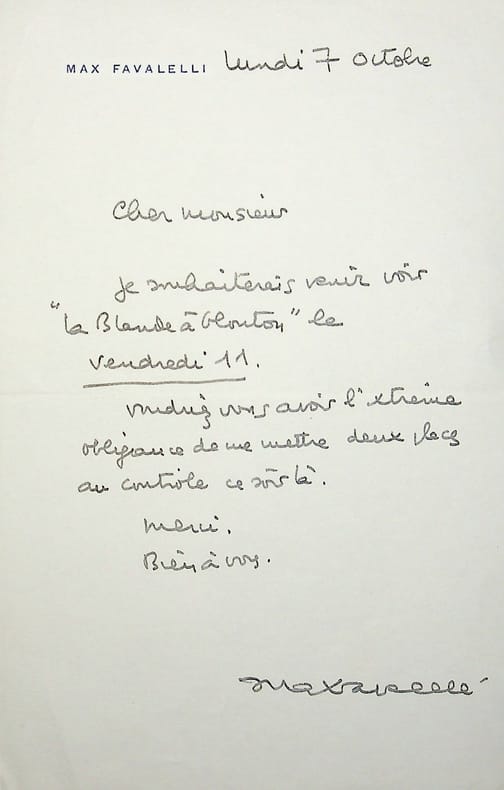 MAX FAVALELLI lundi 7 octobre
Cher monsieur
je souhaiterais venir voir
"la Blande à Glouton" le
vendredi 11.
voudriez vous avoir l'extrême
obligeance de me mettre deux places
au contrôle ce soir là.
merci.
Bien à vous.
Max Favalelli